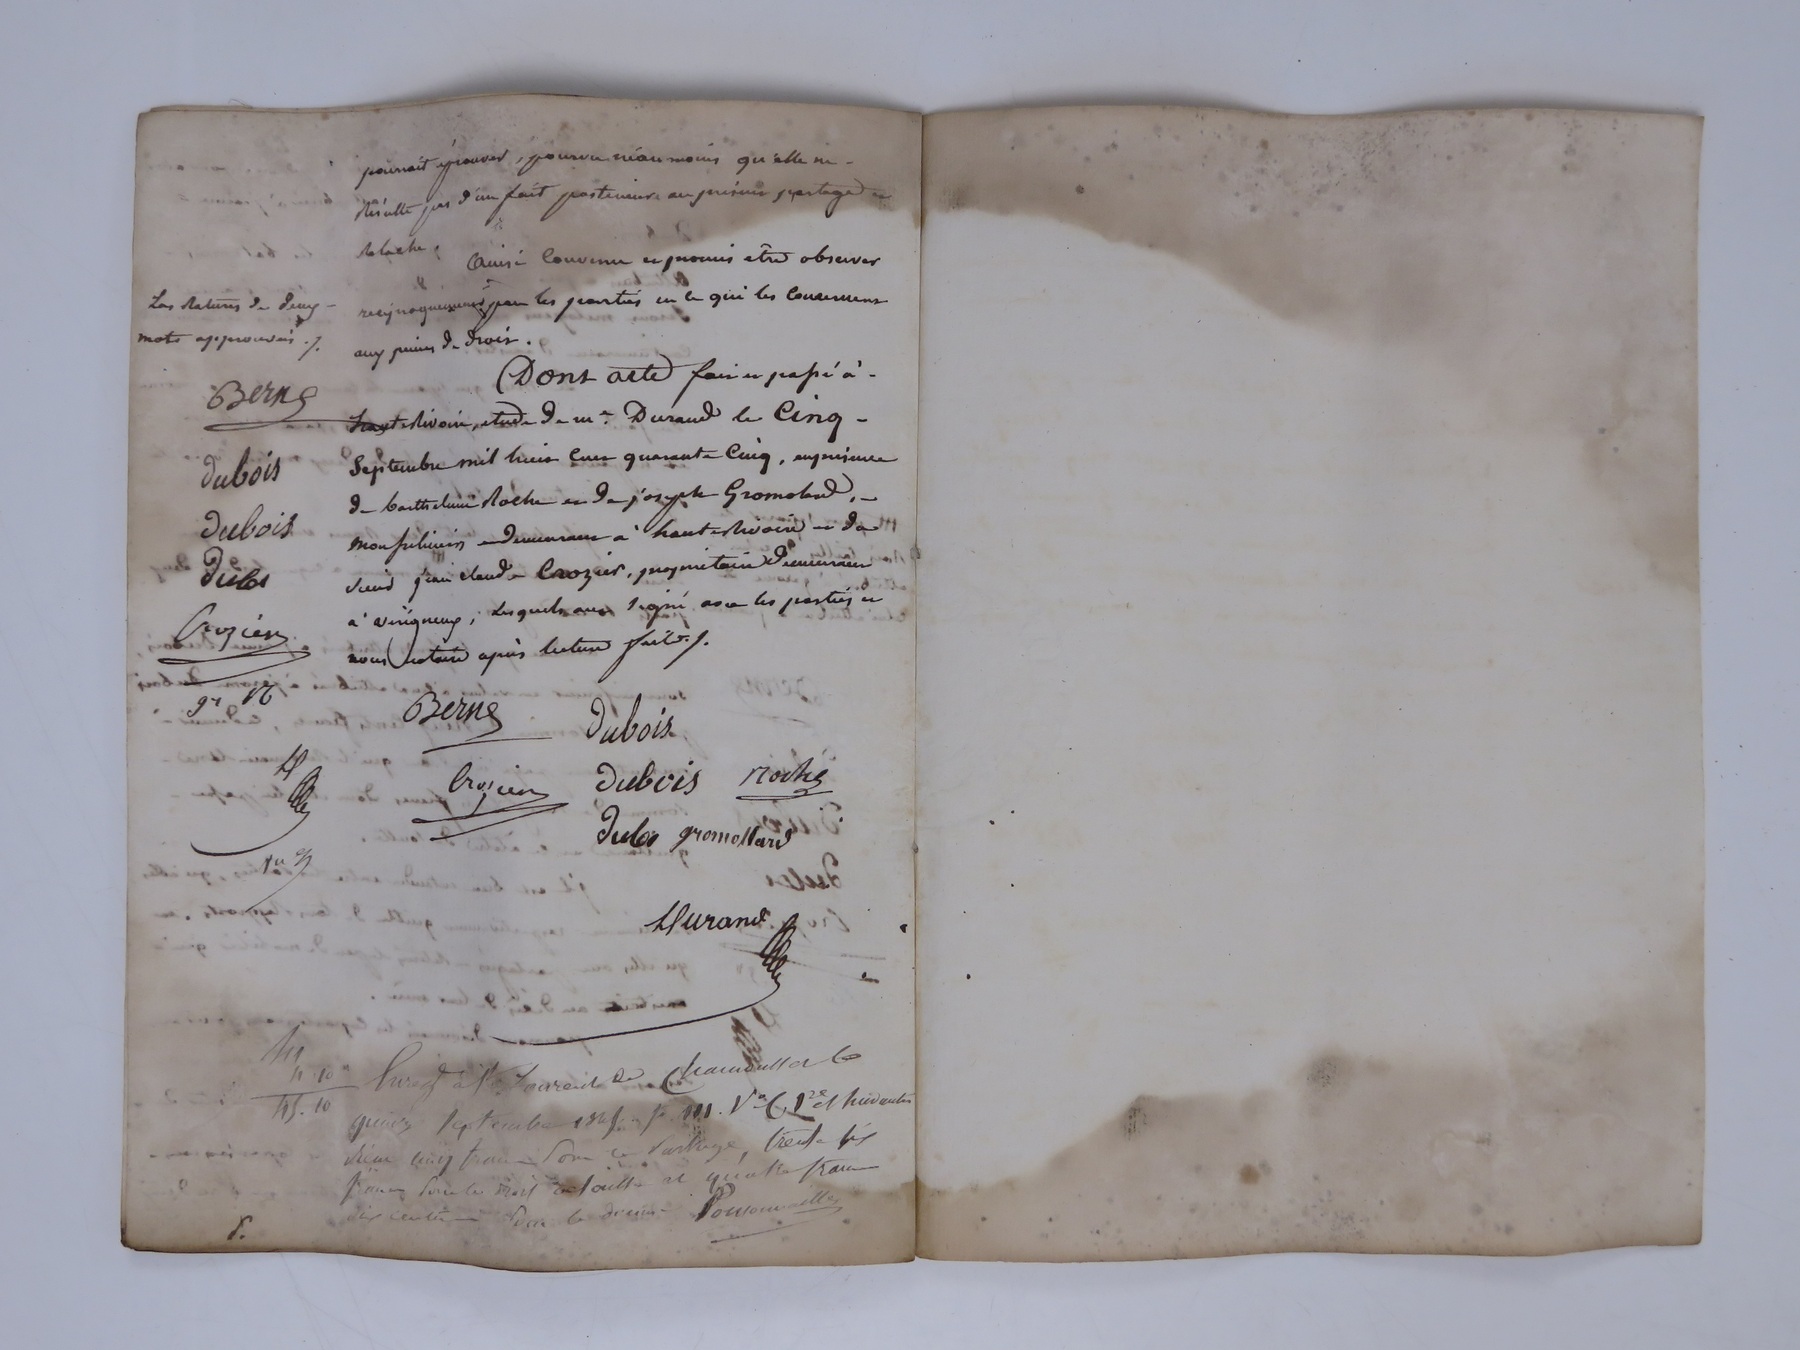 pourrait éprouver, pourvu néanmoins qu'elle ne -
résulte pas d'un fait postérieur au présent partage et
relache;
Ainsi convenu et promis être observer
réciproquement par les parties en ce qui les concernent
aux peines de droit.
Les ratures de deux -
mots approuvés ./.
Dont acte fait et passé à -
haute Rivoire, étude de me. Durand le Cinq -
Septembre mil huit cent quarante cinq, en présence
de barthelemi Roche et de joseph Gromolard, -
demeurant à haute Rivoire et de
sieur jean claude Crozier, propriétaire demeurant
à viriqneux; lesquels ont signé avec les parties et
nous notaire après lecture faite ./.
Berne
dubois
dubois
dubos
Crozier
Berne dubois
Crozier dubois roche
dubos gromollard
Durand
4.10
45.10
à St. Laurent de Chamousset le
quinze Septembre 1845. f. 111. Vo. C. et suivantes
cinq francs pour le partage, trente six
francs pour le droit de soulte et quatre francs
dix centimes pour le décime
8.